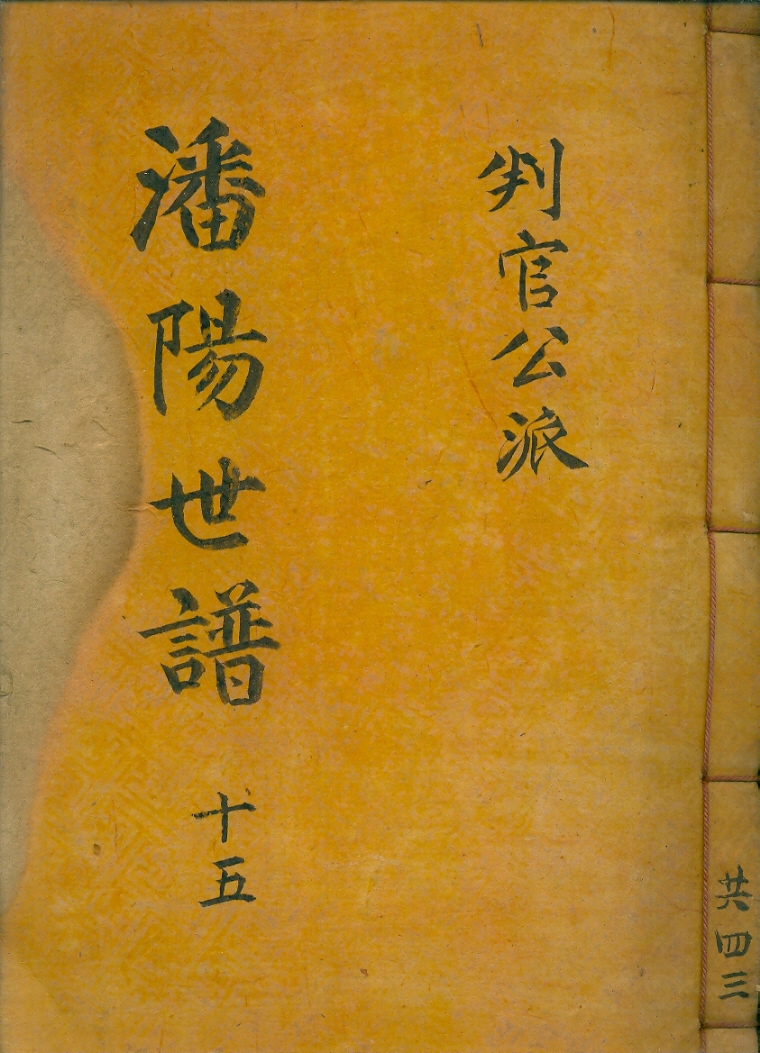 判官公派
潘陽世譜 十五
共四三